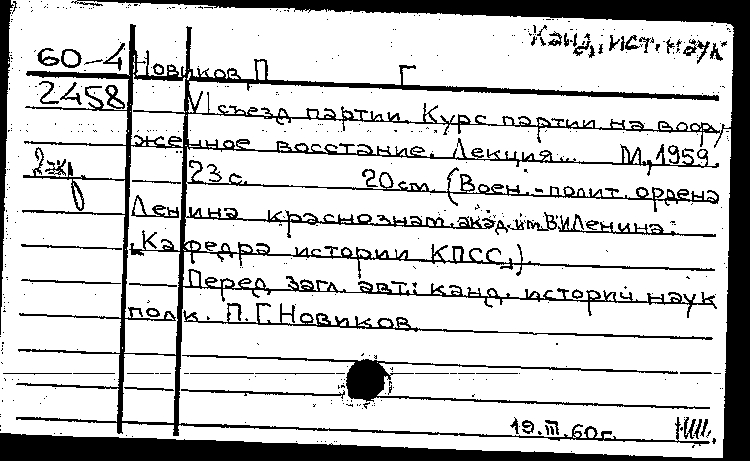 Канд. ист. наук
60-4 Новиков, П Г
2458 VI съезд партии. Курс партии на воору-
женное восстание. Лекция... М., 1959.
2 экз. 23 с. 20 см. (Воен.-полит. ордена
Ленина краснознам. акад. им В.И Ленина:
Кафедра истории КПСС,).
Перед загл. авт.: канд. историч. наук
полк. П.Г. Новиков.
19.III.60г.